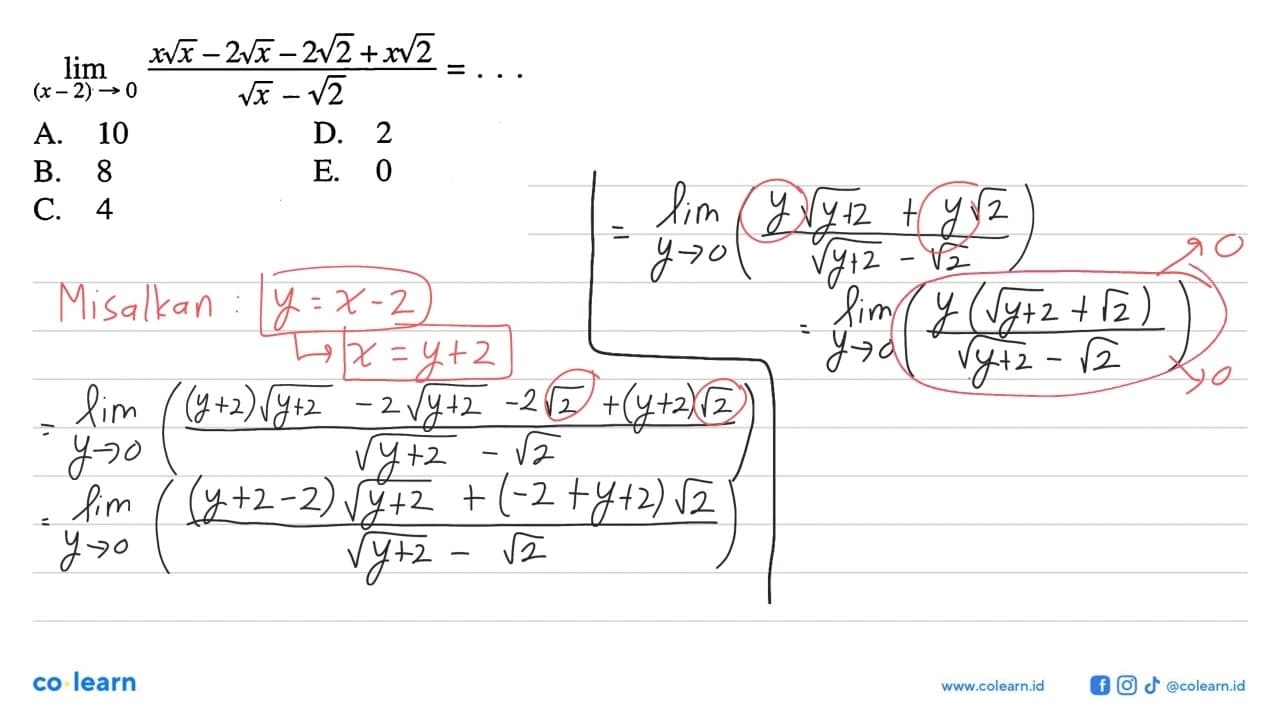 lim (x – 2) → 0 (x√x – 2√x – 2√2 + x√2)/(√x – √2) = . . .
A. 10 D. 2
B. 8 E. 0
C. 4
Misalkan : y = x - 2
↳ x = y + 2
= lim y→0 (((y+2)√(y+2) - 2√(y+2) - 2√2 + (y+2)√2)/(√(y+2) - √2))
= lim y→0 (((y+2-2)√(y+2) + (-2+y+2)√2)/(√(y+2) - √2))
= lim y→0 ((y√(y+2) + y√2)/(√(y+2) - √2))
= lim y→0 ((y(√(y+2) + √2))/(√(y+2) - √2))
→ 0
→ 0
co learn
www.colearn.id @colearn.id